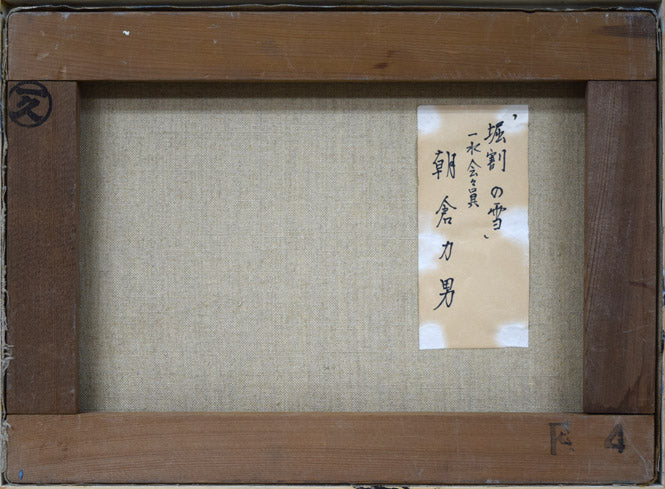 "堀割の雪"
一水会々員
朝倉力男
久
F4